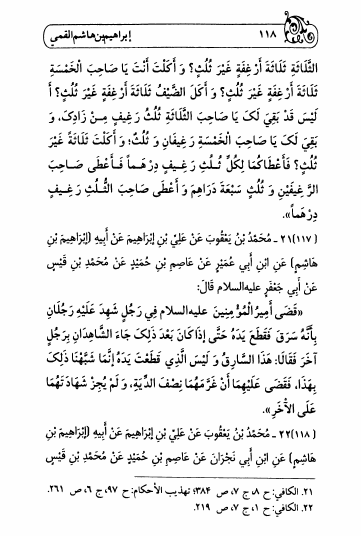 ابراهیم‌بن هاشم القمی
۱۱۸
الثَّلَاثَةِ ثَلَاثَةَ أَرْغِفَةٍ غَيْرَ ثُلُثٍ؟ وَ أَكَلْتَ أَنْتَ يَا صَاحِبَ الْخَمْسَةِ
ثَلَاثَةَ أَرْغِفَةٍ غَيْرَ ثُلُثٍ؟ وَ أَكَلَ الضَّيْفُ ثَلَاثَةَ أَرْغِفَةٍ غَيْرَ ثُلُثٍ؟ أَ
لَيْسَ قَدْ بَقِيَ لَکَ يَا صَاحِبَ الثَّلَاثَةِ ثُلُثُ رَغِيفٍ مِنْ زَادِکَ، وَ
بَقِيَ لَکَ يَا صَاحِبَ الْخَمْسَةِ رَغِيفَانِ وَ ثُلُثٌ؛ وَ أَكَلْتَ ثَلَاثَةً غَيْرَ
ثُلُثٍ؟ فَأَعْطَاكُمَا لِكُلِّ ثُلُثِ رَغِيفٍ دِرْهَماً فَأَعْطَى صَاحِبَ
الرَّغِيفَيْنِ وَ ثُلُثٍ سَبْعَةَ دَرَاهِمَ وَ أَعْطَى صَاحِبَ الثُّلُثِ رَغِيفٍ
دِرْهَماً».
(۱۱۷) ۲۱ ـ مُحَمَّدُ بْنُ يَعْقُوبَ عَنْ عَلِيِّ بْنِ إِبْرَاهِيمَ عَنْ أَبِيهِ (إِبْرَاهِيمَ بْنِ
هَاشِمٍ) عَنِ ابْنِ أَبِي عُمَيْرٍ عَنْ عَاصِمِ بْنِ حُمَيْدٍ عَنْ مُحَمَّدِ بْنِ قَيْسٍ
عَنْ أَبِي جَعْفَرٍ علیه‌السلام قَالَ:
«قَضَى أَمِيرُ الْمُؤْمِنِينَ علیه‌السلام فِي رَجُلٍ شَهِدَ عَلَيْهِ رَجُلَانِ
بِأَنَّهُ سَرَقَ فَقَطَعَ يَدَهُ حَتَّى إِذَا كَانَ بَعْدَ ذَلِکَ جَاءَ الشَّاهِدَانِ بِرَجُلٍ
آخَرَ فَقَالَا: هَذَا السَّارِقُ وَ لَيْسَ الَّذِي قَطَعْتَ يَدَهُ إِنَّمَا شَبَّهْنَا ذَلِکَ
بِهَذَا، فَقَضَى عَلَيْهِمَا أَنْ غَرَّمَهُمَا نِصْفَ الدِّيَةِ، وَ لَمْ يُجِزْ شَهَادَتَهُمَا
عَلَى الْآخَرِ».
(۱۱۸) ۲۲ ـ مُحَمَّدُ بْنُ يَعْقُوبَ عَنْ عَلِيِّ بْنِ إِبْرَاهِيمَ عَنْ أَبِيهِ (إِبْرَاهِيمَ بْنِ
هَاشِمٍ) عَنِ ابْنِ أَبِي نَجْرَانَ عَنْ عَاصِمِ بْنِ حُمَيْدٍ عَنْ مُحَمَّدِ بْنِ قَيْسٍ
۲۱. الکافی: ح ۸، ج ۷، ص ۳۸۴؛ تهذیب الأحکام: ح ۹۷، ج ۶، ص ۲۶۱.
۲۲. الکافی: ح ۱، ج ۷، ص ۲۱۹.